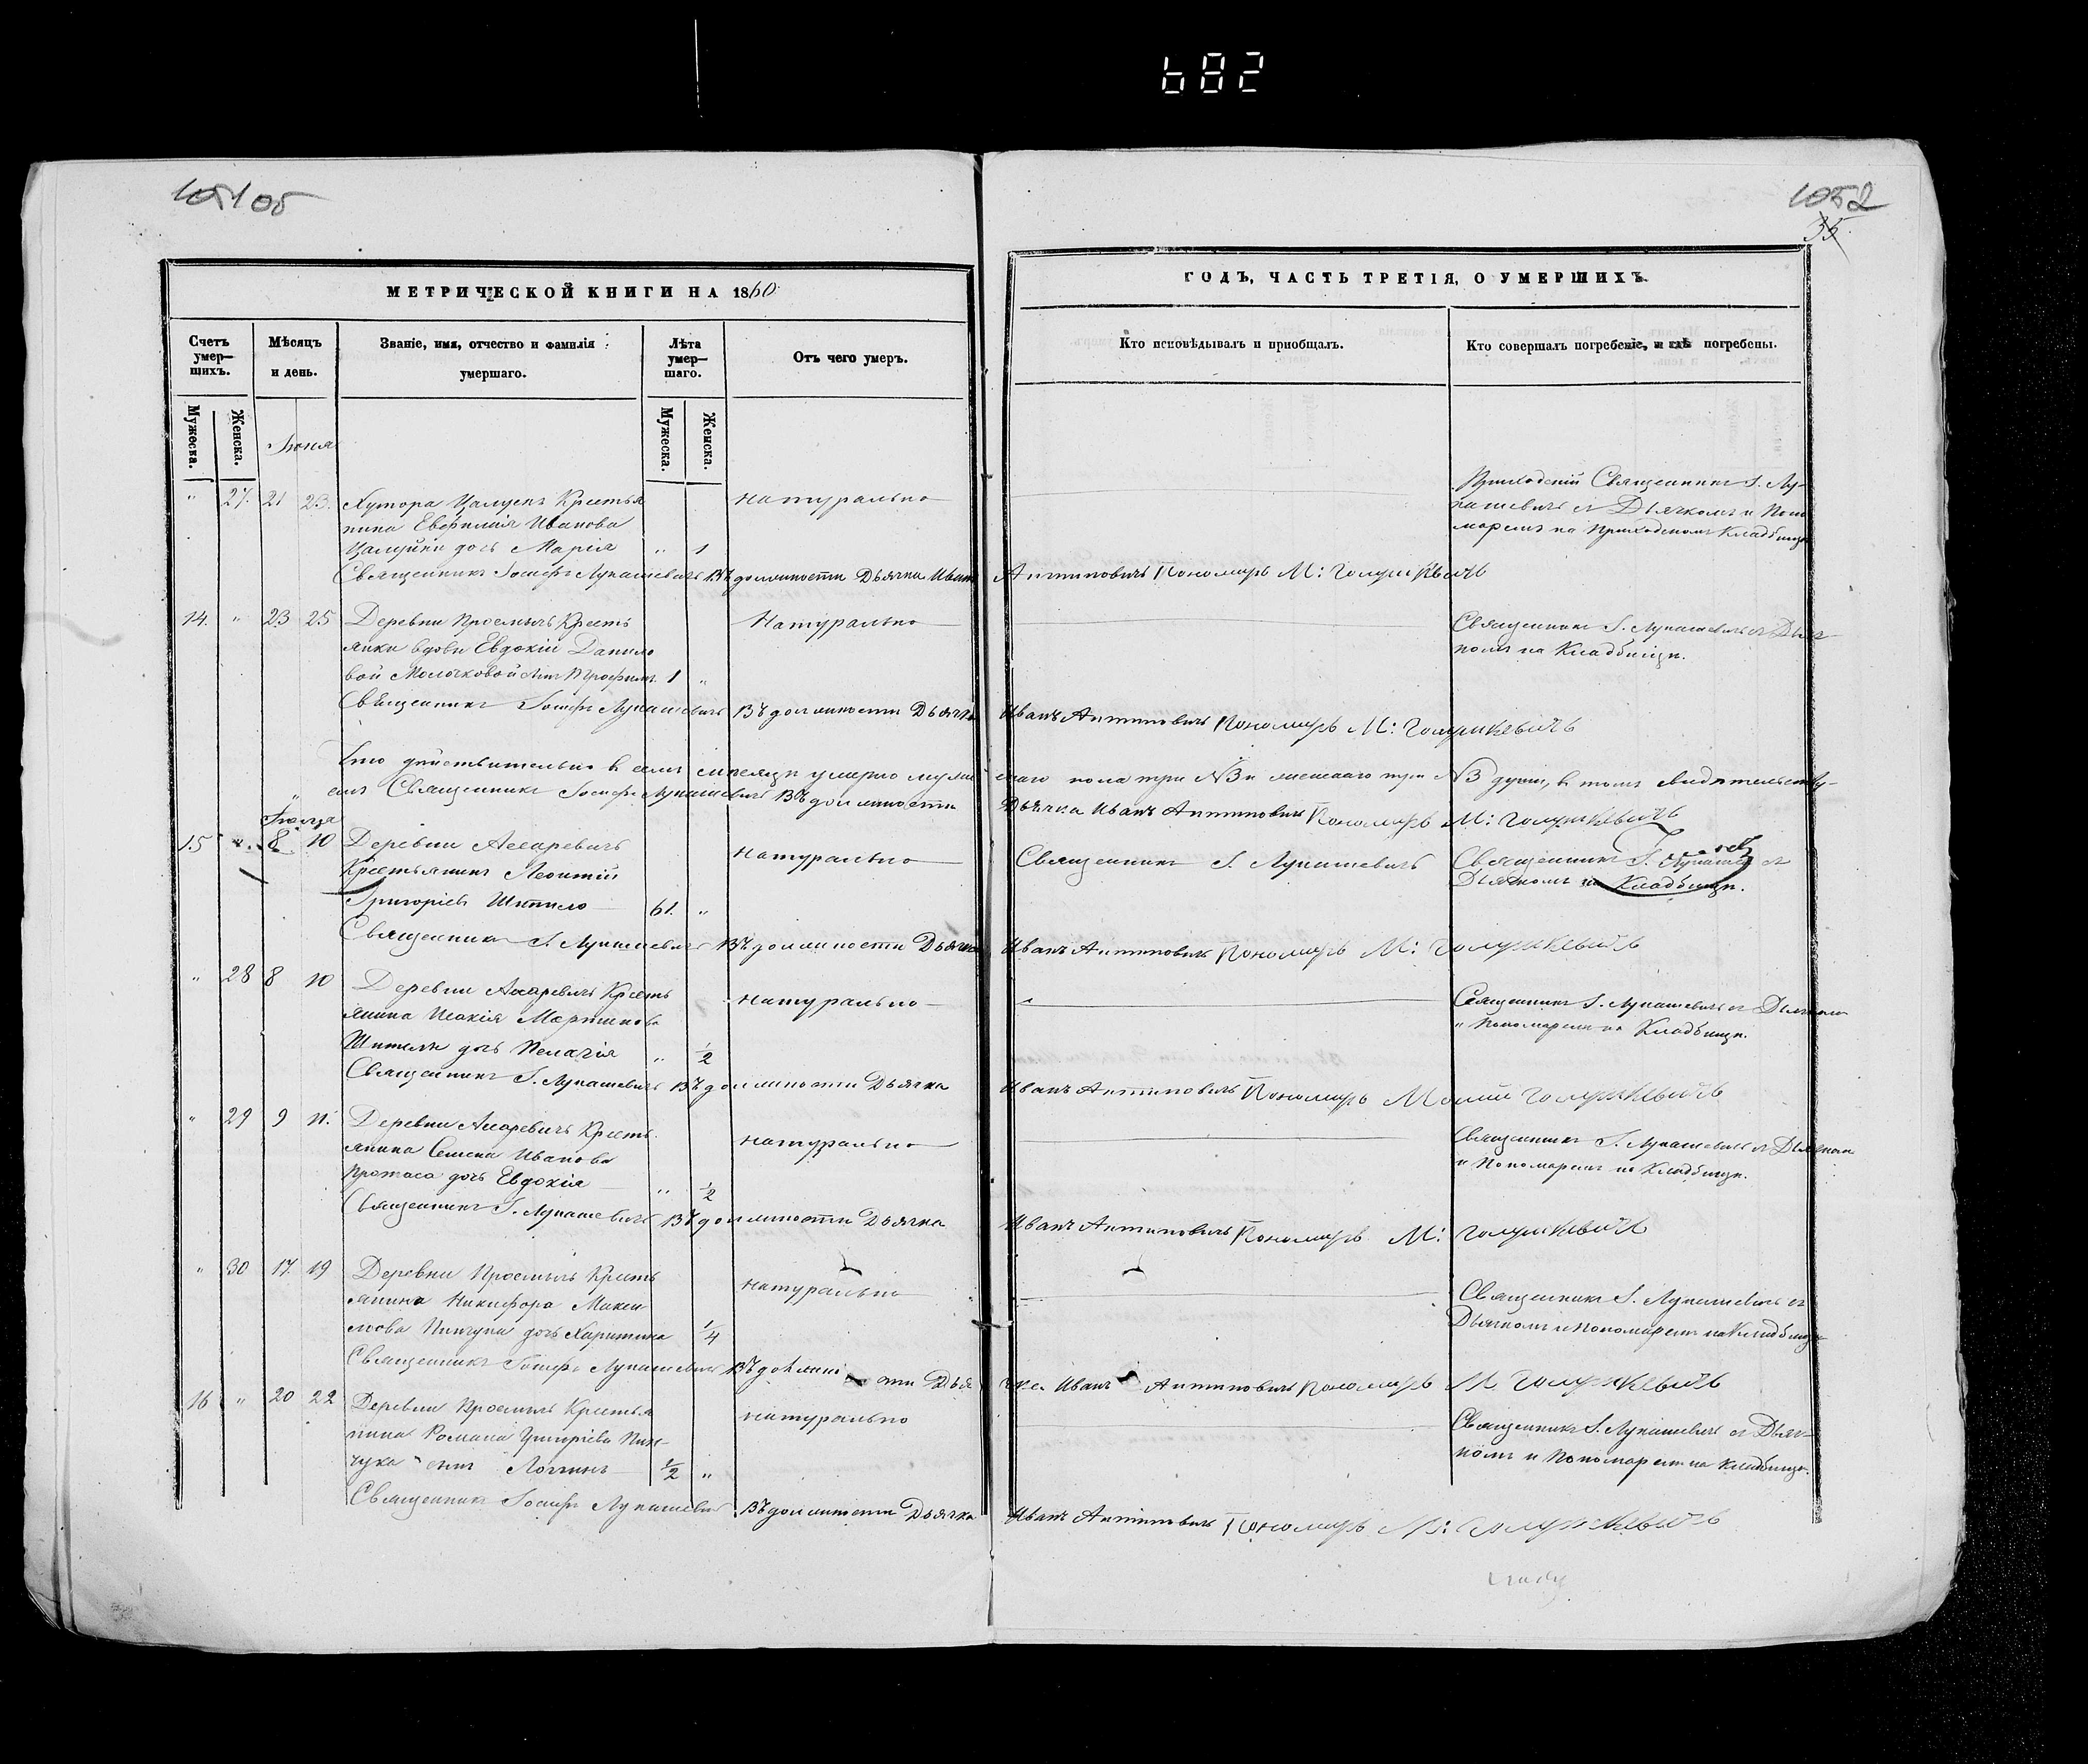 682
105
1052
35
МЕТРИЧЕСКОЙ КНИГИ НА 1860
ГОДЪ, ЧАСТЬ ТРЕТІЯ, О УМЕРШИХЪ.
Счетъ умер–шихъ.
Мѣсяцъ и день.
Званіе, имя, отчество и фамилія умершаго.
Лѣта умер–шаго.
Отъ чего умеръ.
Кто исповѣдывалъ и пріобщалъ.
Кто совершалъ погребеніе, и гдѣ погребены.
Мужеска.
Женска.
Мужеска.
Женска.
Іюня
" 27. 21 23. Хутора Крестья
нина Иванова
дочь Марія " 1
натурально
Приходскій Священникъ І. Лу-
кашевичъ съ Дьячкомъ и Поно
маремъ на Приходскомъ Кладбищѣ
Священникъ Іосифъ Лукашевичъ Въ должности Дьячка Иванъ Антиповичъ Пономарь М:
14. " 23 25 Деревни Кресть
янки вдовы Евдокіи Данило
вой сынъ 1 "
Натурально
Священникъ І. Лукашевичъ съ Дьяч
комъ на Кладбищѣ.
Священникъ Іосифъ Лукашевичъ Въ должности Дьячка Иванъ Антиповичъ Пономарь М:
Что дѣйствительно въ семъ мѣсяцѣ умерло муже скаго пола три №3 и женскаго три №3 души, въ томъ свидѣтельству-
емъ Священникъ Іосифъ Лукашевичъ Въ должности Дьячка Иванъ Антиповичъ Пономарь М:
Іюля
15 " 8 10 Деревни
Крестьянинъ Леонтій
Григоріевъ Шпило 61. "
натурально
Священникъ І. Лукашевичъ
Священникъ І. съ
Дьячкомъ на Кладбищѣ.
Священникъ І. Лукашевичъ Въ должности Дьячка Иванъ Антиповичъ Пономарь М:
" 28 8 10 Деревни Кресть
янина Исакія Мартинова
дочь Пелагія " 1/2
натурально
Священникъ І. Лукашевичъ съ Дьячкомъ
и Пономаремъ на Кладбищѣ.
Священникъ І. Лукашевичъ Въ должности Дьячка Иванъ Антиповичъ Пономарь
" 29 9 11. Деревни Кресть
янина Семена Иванова
Протаса дочь Евдокія " 1/2
натурально
Священникъ І. Лукашевичъ съ Дьячкомъ
и Пономаремъ на Кладбищѣ.
Священникъ І. Лукашевичъ Въ должности Дьячка Иванъ Антиповичъ Пономарь М:
" 30 17. 19 Деревни Кресть
янина Никифора Макси
мова Пинчука дочь Харитина 1/4
натурально
Священникъ І. Лукашевичъ съ
Дьячкомъ и Пономаремъ на Кладбищѣ
Священникъ Іосифъ Лукашевичъ Въ должности Дьячка Иванъ Антиповичъ Пономарь М
16 " 20 22 Деревни Крестья
нина Романа Григоріева Пин-
чука сынъ Логгинъ 1/2 "
натурально
Священникъ І. Лукашевичъ съ Дьяч-
комъ и Пономаремъ на кладбищѣ.
Священникъ Іосифъ Лукашевичъ Въ должности Дьячка Иванъ Антиповичъ Пономарь М: